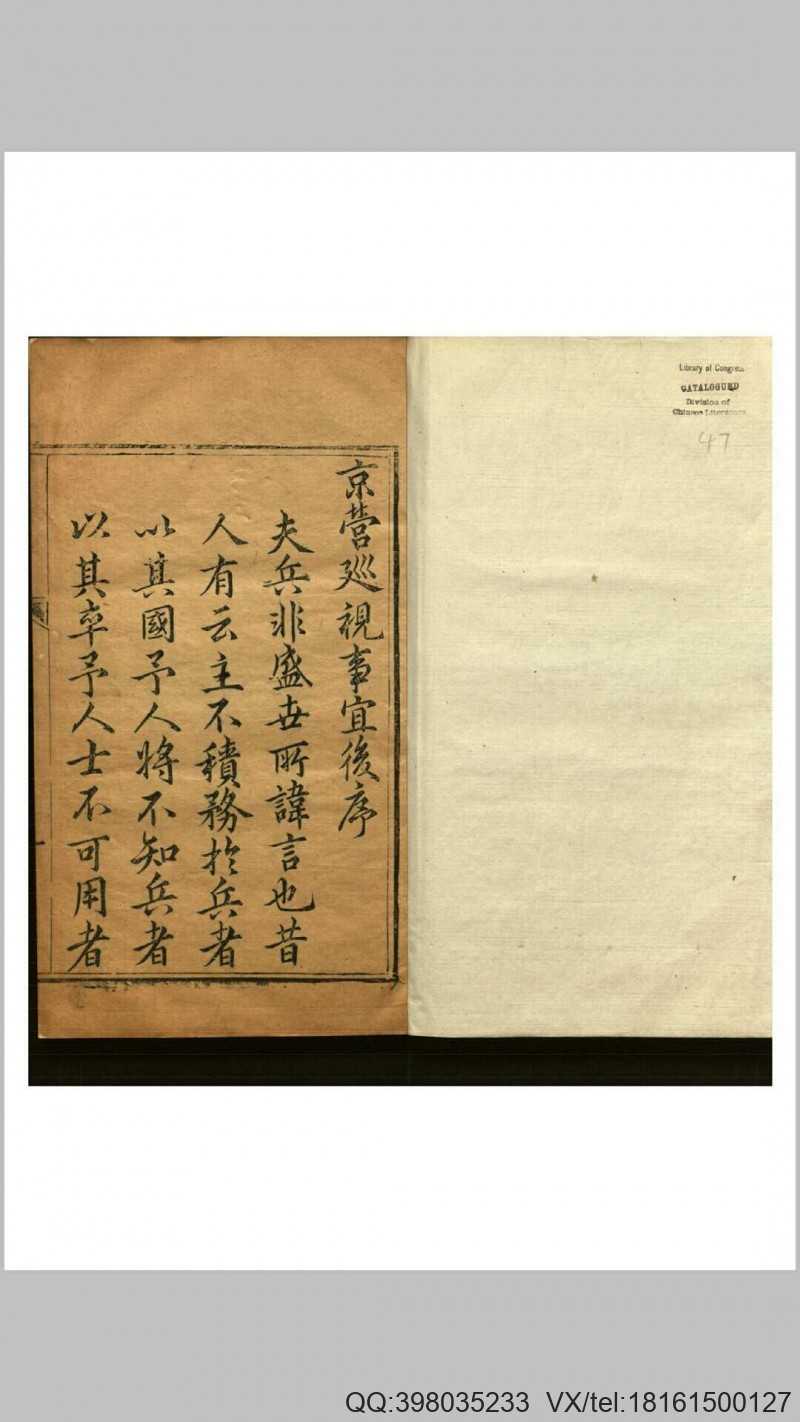 京營廵視事宜後序
夫兵非盛世所諱言也昔
人有云主不積務於兵者
以其國予人將不知兵者
以其卒予人士不可用者
Library of Congress
CATALOGUED
Division of
Chinese Literature
47
QQ:398035233 VX/tel:18161500127